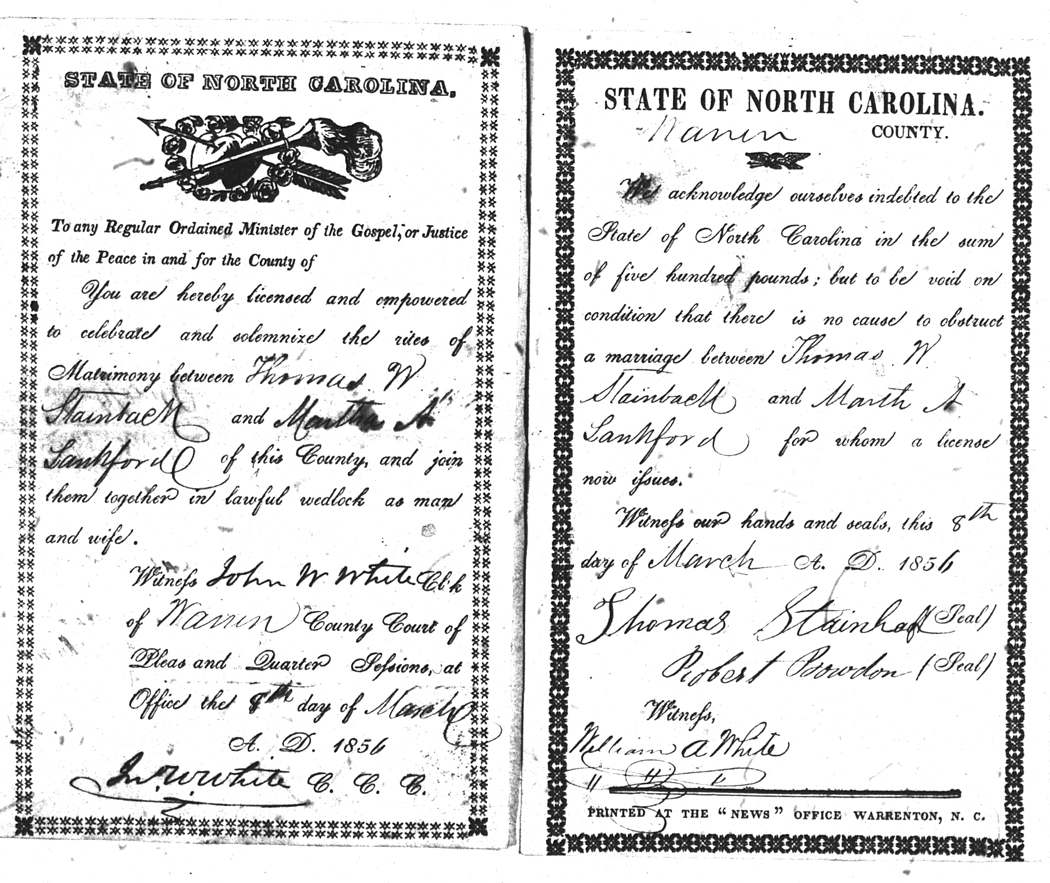 STATE OF NORTH CAROLINA.
To any Regular Ordained Minister of the Gospel, or Justice
of the Peace in and for the County of
You are hereby licensed and empowered
to celebrate and solemnize the rites of
Matrimony between Thomas W
Stainback and Martha A
Lankford of this County, and join
them together in lawful wedlock as man
and wife.
Witness John W White Cl'k
of Warren County Court of
Pleas and Quarter Sessions, at
Office the 8th day of March
A. D. 1856
Jno. W. White C. C. C.
STATE OF NORTH CAROLINA.
Warren COUNTY.
We acknowledge ourselves indebted to the
State of North Carolina in the sum
of five hundred pounds; but to be void on
condition that there is no cause to obstruct
a marriage between Thomas W
Stainback and Marth A
Lankford for whom a license
now issues.
Witness our hands and seals, this 8th
day of March A. D. 1856
Thomas Stainback (Seal)
Robert Bowdon (Seal)
Witness,
William A White
" " "
PRINTED AT THE "NEWS" OFFICE WARRENTON, N. C.